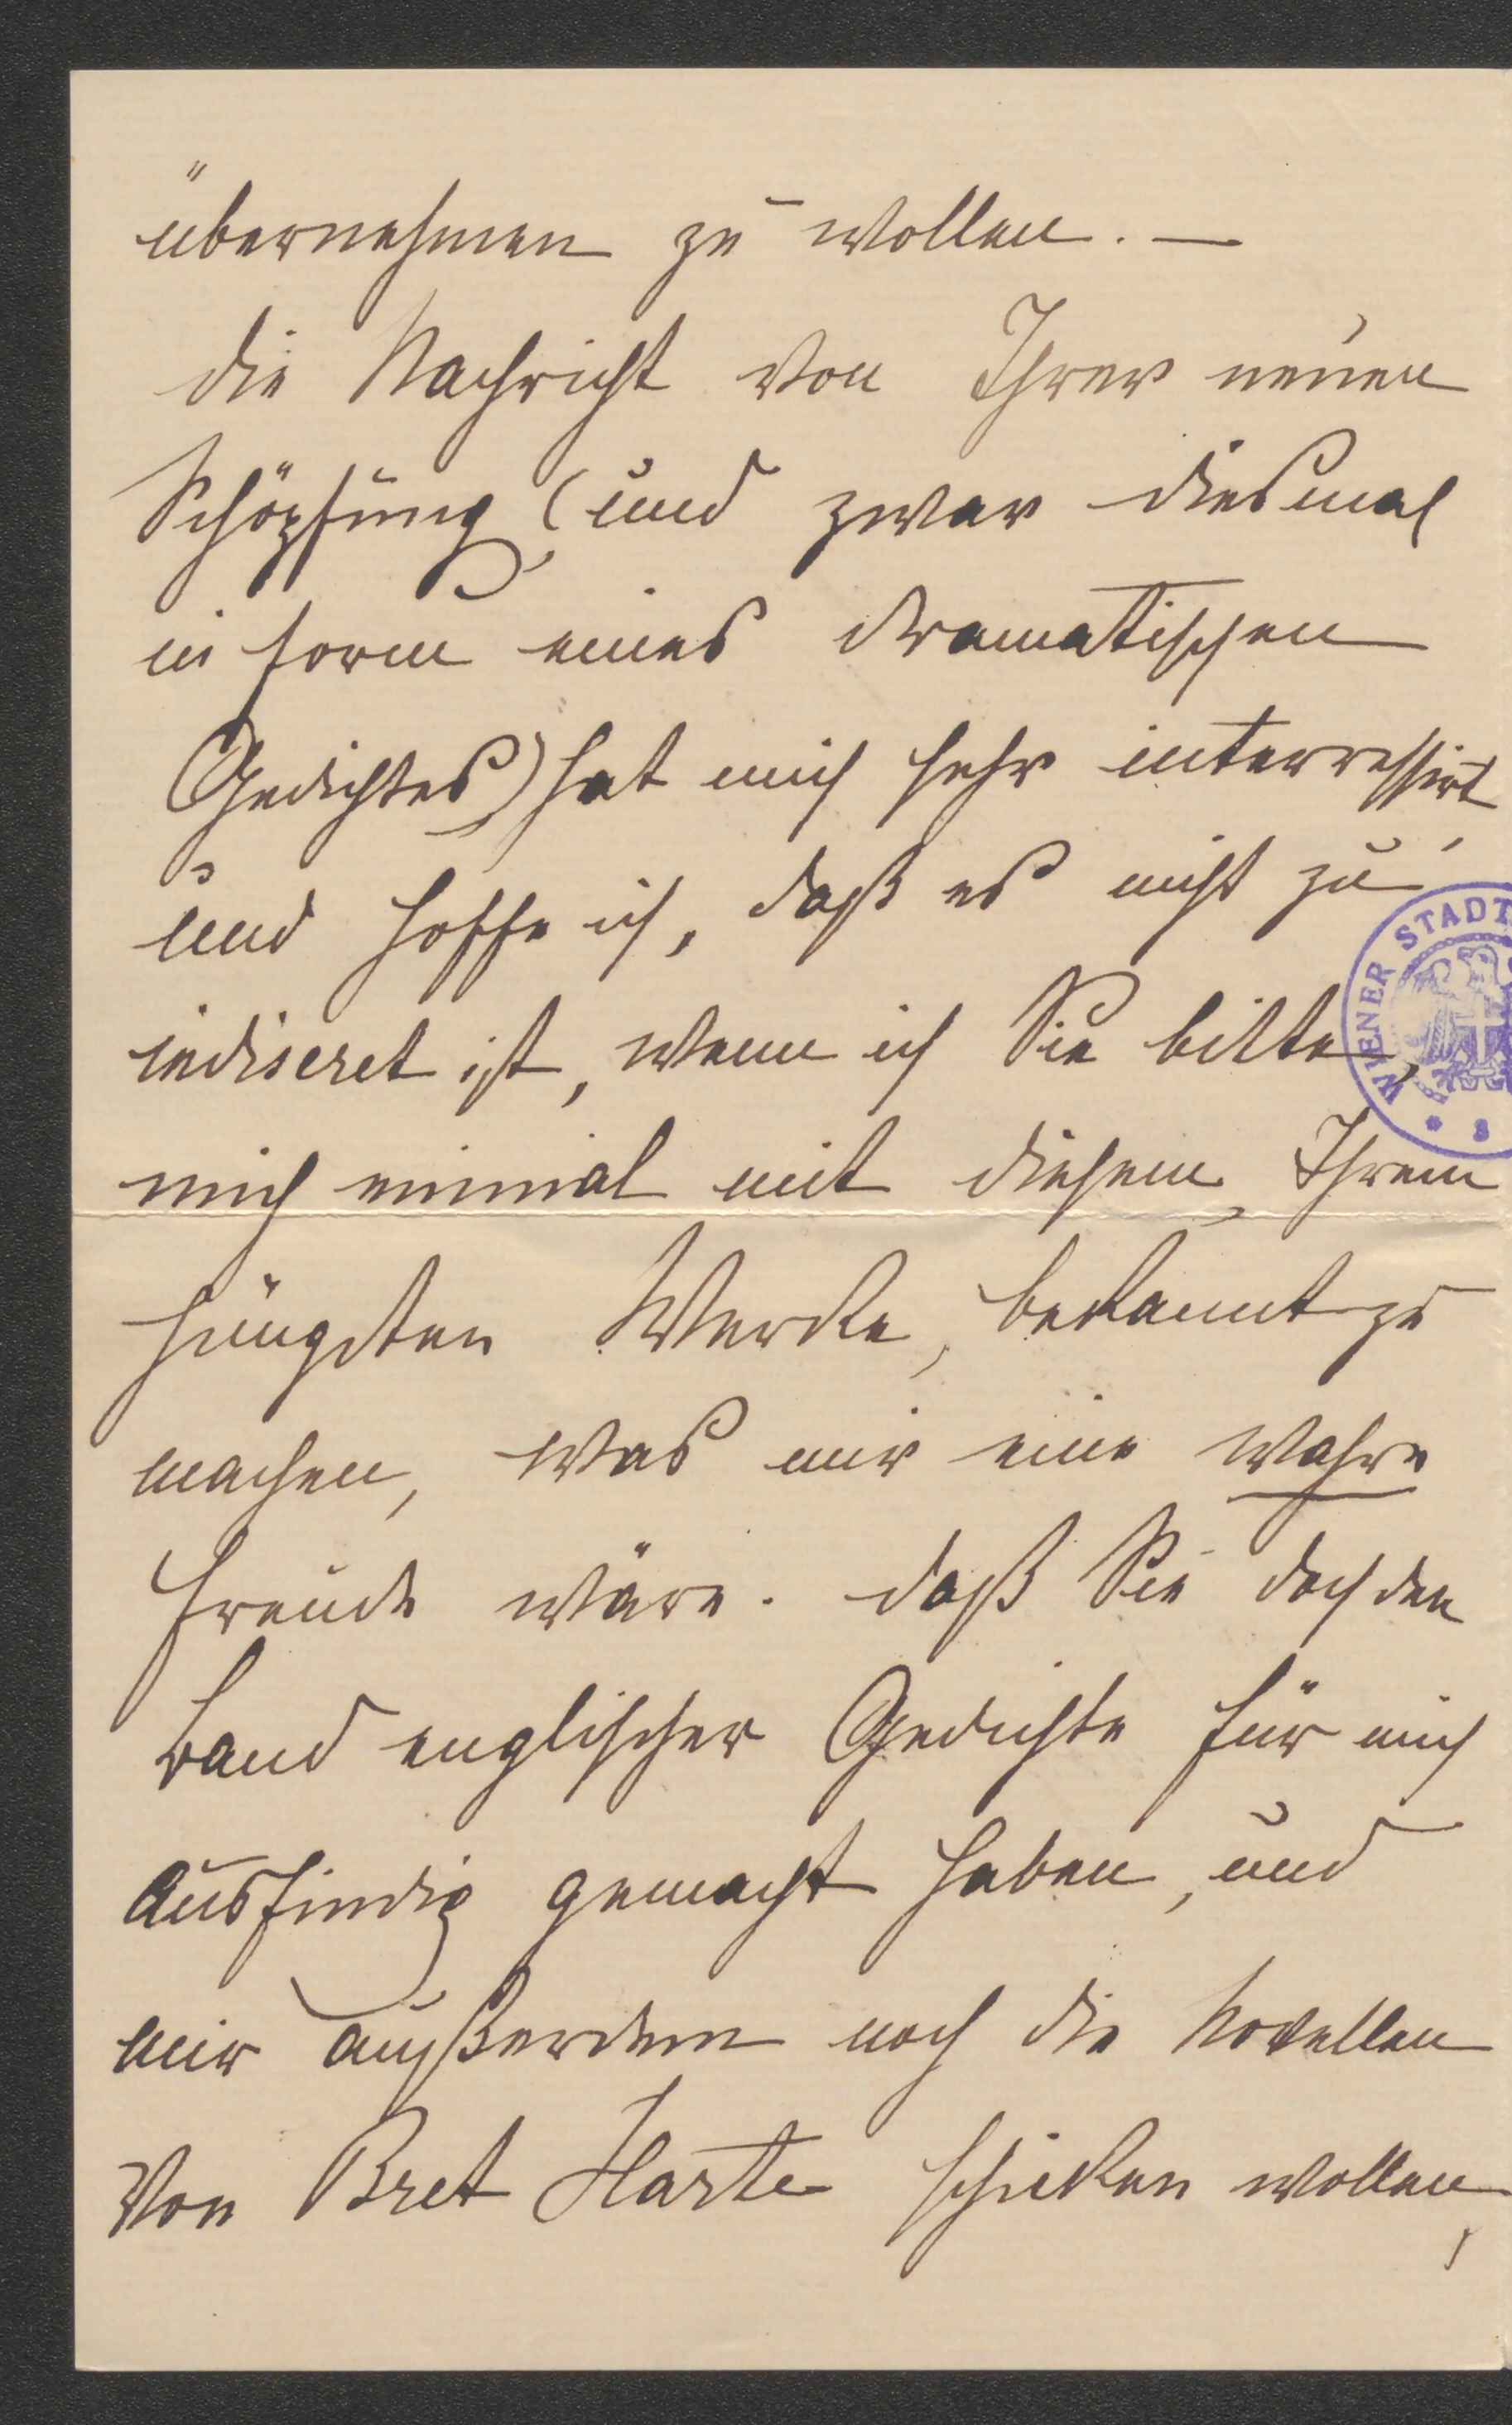 übernehmen zu wollen. —
die Nachricht von Ihrer neuen
Schöpfung (und zwar diesmal
in Form eines dramatischen
Gedichtes) hat mich sehr interressirt
und hoffe ich, daß es nicht zu
indiscret ist, wenn ich Sie bitte,
mich einmal mit diesem, Ihrem
jüngsten Werke, bekannt zu
machen, was mir eine wahre
Freude wäre. daß Sie doch den
Band englischer Gedichte für mich
ausfindig gemacht haben, und
mir außerdem noch die Novellen
von Bret Harte schicken wollen,
WIENER STADT